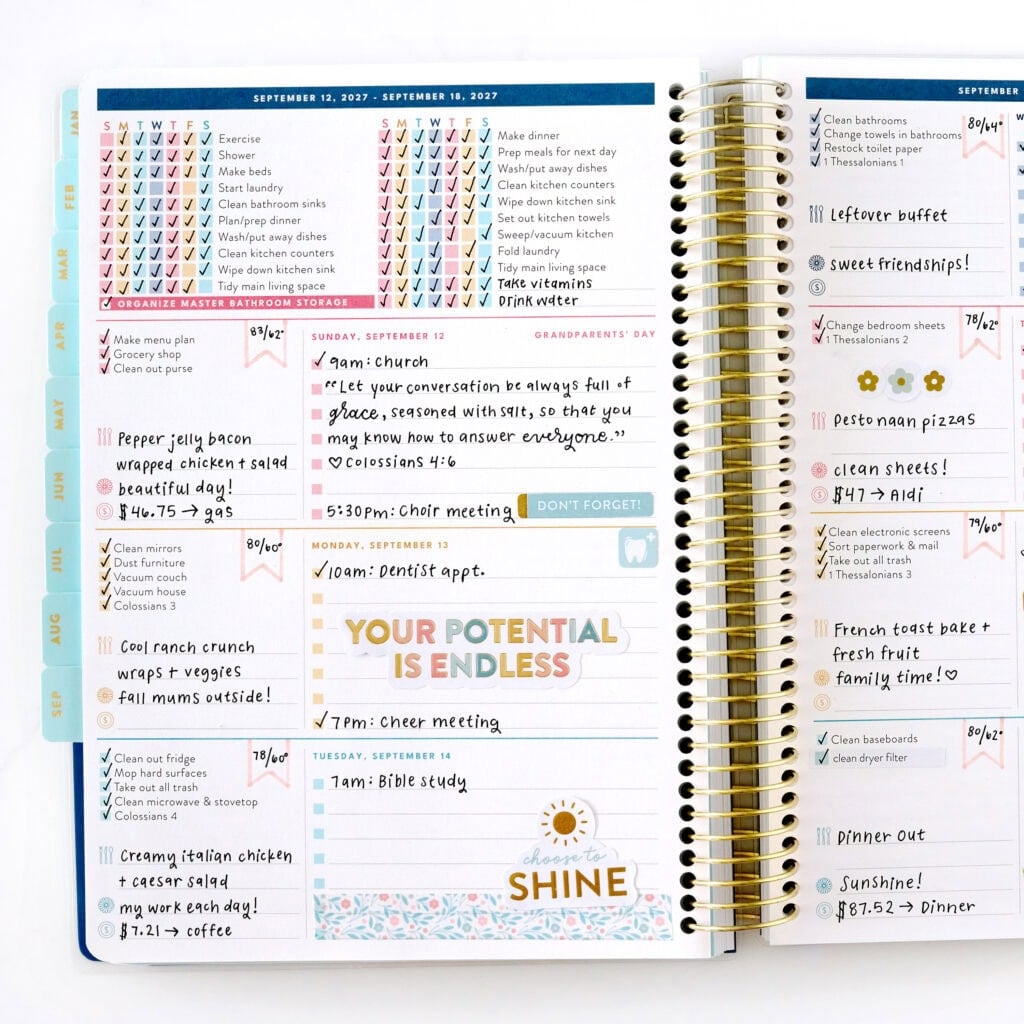 JAN
FEB
MAR
APR
MAY
JUN
JUL
AUG
SEP
SEPTEMBER 12, 2027 - SEPTEMBER 18, 2027
S M T W T F S
Exercise
Shower
Make beds
Start laundry
Clean bathroom sinks
Plan/prep dinner
Wash/put away dishes
Clean kitchen counters
Wipe down kitchen sink
Tidy main living space
ORGANIZE MASTER BATHROOM STORAGE
S M T W T F S
Make dinner
Prep meals for next day
Wash/put away dishes
Clean kitchen counters
Wipe down kitchen sink
Set out kitchen towels
Sweep/vacuum kitchen
Fold laundry
Tidy main living space
Take vitamins
Drink water
Make menu plan
Grocery shop
Clean out purse
83/62°
Pepper jelly bacon
wrapped chicken + salad
beautiful day!
$46.75 → gas
SUNDAY, SEPTEMBER 12
GRANDPARENTS' DAY
9am: Church
"Let your conversation be always full of
grace, seasoned with salt, so that you
may know how to answer everyone."
♡ Colossians 4:6
5:30pm: Choir meeting
DON'T FORGET!
Clean mirrors
Dust furniture
Vacuum couch
Vacuum house
Colossians 3
80/60°
Cool ranch crunch
wraps + veggies
fall mums outside!
MONDAY, SEPTEMBER 13
10am: Dentist appt.
YOUR POTENTIAL
IS ENDLESS
7pm: Cheer meeting
Clean out fridge
Mop hard surfaces
Take out all trash
Clean microwave & stovetop
Colossians 4
78/60°
Creamy italian chicken
+ caesar salad
my work each day!
$7.21 → coffee
TUESDAY, SEPTEMBER 14
7am: Bible study
choose to
SHINE
SEPTEMBER
Clean bathrooms
Change towels in bathrooms
Restock toilet paper
1 Thessalonians 1
80/64°
Leftover buffet
sweet friendships!
Change bedroom sheets
1 Thessalonians 2
78/62°
Pesto naan pizzas
clean sheets!
$47 → Aldi
Clean electronic screens
Sort paperwork & mail
Take out all trash
1 Thessalonians 3
79/60°
French toast bake +
fresh fruit
family time! ♡
Clean baseboards
clean dryer filter
80/62°
Dinner Out
Sunshine!
$87.52 → Dinner